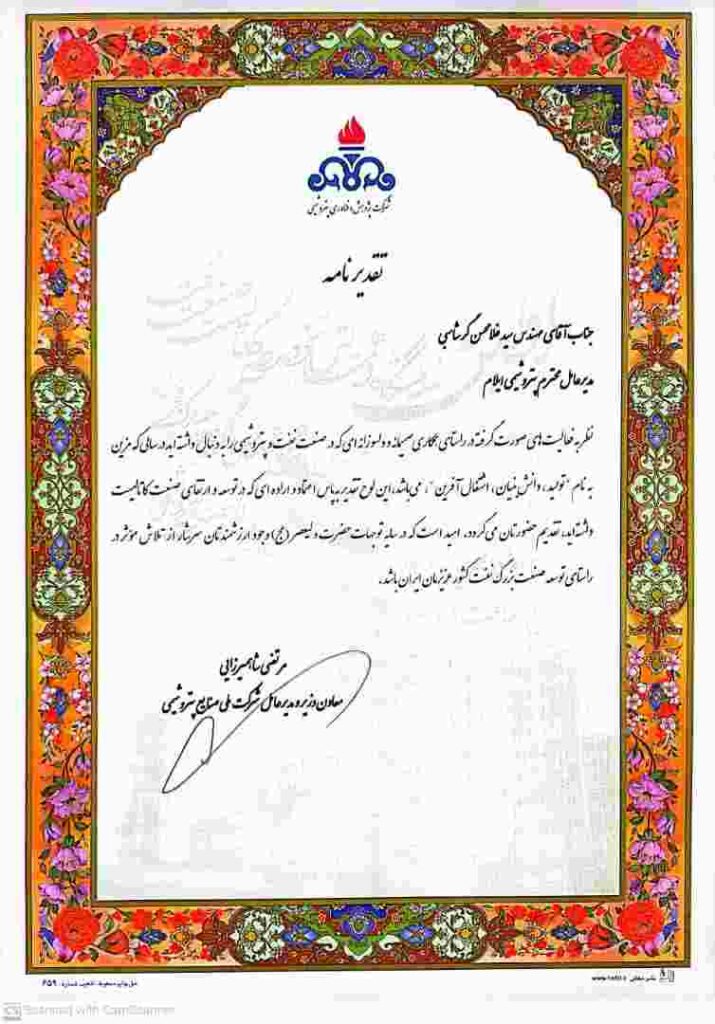 شرکت پژوهش و فناوری پتروشیمی
تقدیر نامه
جناب آقای مهندس سید غلامحسن گرشاسبی
مدیرعامل محترم پتروشیمی ایلام
نظر به فعالیت های صورت گرفته در راستای همکاری صمیمانه و دلسوزانه ای که در صنعت نفت و پتروشیمی را به دنبال داشته اید در سالی که مزین
به نام "تولید، دانش بنیان، اشتغال آفرین"، می باشد، این لوح تقدیر به پاس اعتماد و اراده ای که در توسعه و ارتقای صنعت کاتالیست
داشته اید، تقدیم حضورتان می گردد. امید است که در سایه توجهات حضرت ولیعصر (عج) وجود ارزشمندتان سرشار از تلاش مؤثر در
راستای توسعه صنعت بزرگ نفت کشور عزیزمان ایران باشد.
مرتضی شاهمیرزایی
معاون وزیر و مدیرعامل شرکت ملی صنایع پتروشیمی
حق چاپ محفوظ، تذهیب شماره: ۶۵۹
Scanned with CamScanner